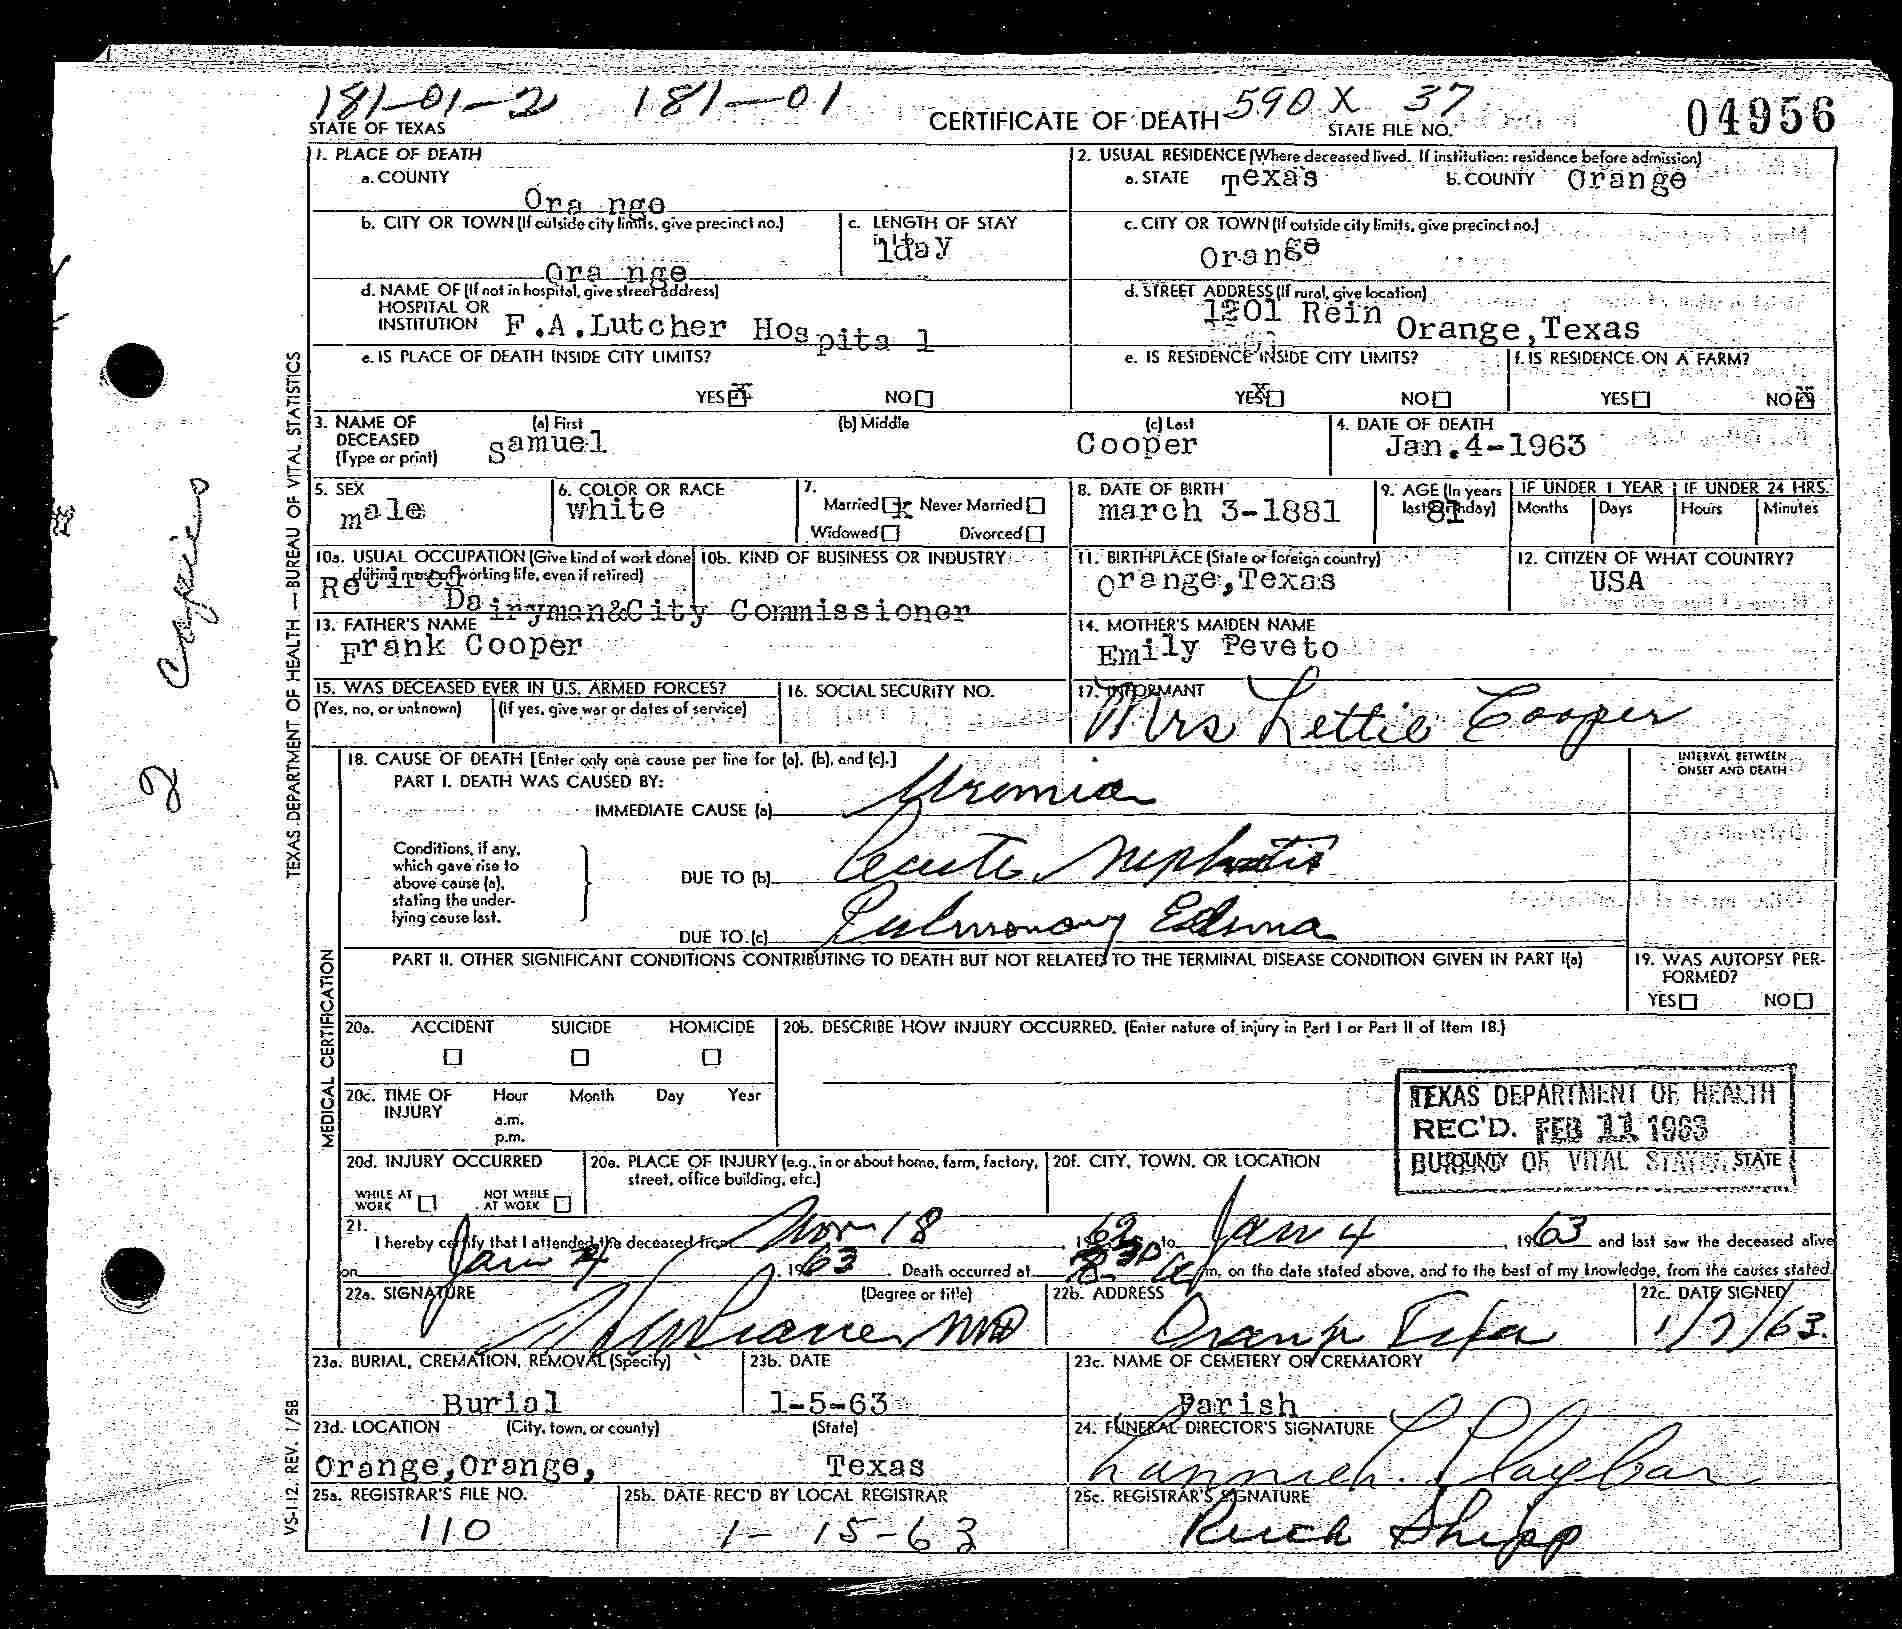 181-01-2 181-01 590X 37
STATE OF TEXAS CERTIFICATE OF DEATH STATE FILE NO. 04956
1. PLACE OF DEATH
a. COUNTY
Orange
2. USUAL RESIDENCE (Where deceased lived. If institution: residence before admission)
a. STATE Texas b. COUNTY Orange
b. CITY OR TOWN (If outside city limits, give precinct no.)
Orange
c. LENGTH OF STAY
1day
c. CITY OR TOWN (If outside city limits, give precinct no.)
Orange
d. NAME OF (If not in hospital, give street address)
HOSPITAL OR
INSTITUTION F.A.Lutcher Hospital
d. STREET ADDRESS (If rural, give location)
1201 Rein Orange,Texas
e. IS PLACE OF DEATH INSIDE CITY LIMITS?
YES X NO
e. IS RESIDENCE INSIDE CITY LIMITS?
YES X NO
f. IS RESIDENCE ON A FARM?
YES NO X
3. NAME OF DECEASED (Type or print)
(a) First (b) Middle (c) Last
Samuel Cooper
4. DATE OF DEATH
Jan.4-1963
5. SEX
male
6. COLOR OR RACE
white
7.
Married X Never Married
Widowed Divorced
8. DATE OF BIRTH
march 3-1881
9. AGE (In years last birthday)
81
IF UNDER 1 YEAR IF UNDER 24 HRS.
Months Days Hours Minutes
10a. USUAL OCCUPATION (Give kind of work done during most of working life, even if retired)
10b. KIND OF BUSINESS OR INDUSTRY
Retired
Dairyman&City Commissioner
11. BIRTHPLACE (State or foreign country)
Orange,Texas
12. CITIZEN OF WHAT COUNTRY?
USA
13. FATHER'S NAME
Frank Cooper
14. MOTHER'S MAIDEN NAME
Emily Peveto
15. WAS DECEASED EVER IN U.S. ARMED FORCES?
(Yes, no, or unknown) (If yes, give war or dates of service)
16. SOCIAL SECURITY NO.
17. INFORMANT
Mrs Lettie Cooper
18. CAUSE OF DEATH [Enter only one cause per line for (a), (b), and (c).]
PART I. DEATH WAS CAUSED BY:
IMMEDIATE CAUSE (a) Uremia
INTERVAL BETWEEN
ONSET AND DEATH
Conditions, if any,
which gave rise to
above cause (a),
stating the under-
lying cause last.
DUE TO (b) Acute Nephritis
DUE TO (c) Pulmonary Edema
PART II. OTHER SIGNIFICANT CONDITIONS CONTRIBUTING TO DEATH BUT NOT RELATED TO THE TERMINAL DISEASE CONDITION GIVEN IN PART I(a)
19. WAS AUTOPSY PER-
FORMED?
YES NO
20a. ACCIDENT SUICIDE HOMICIDE
20b. DESCRIBE HOW INJURY OCCURRED. (Enter nature of injury in Part I or Part II of Item 18.)
20c. TIME OF INJURY Hour Month Day Year
a.m.
p.m.
TEXAS DEPARTMENT OF HEALTH
REC'D. FEB 11 1963
BUREAU OF VITAL STATISTICS
20d. INJURY OCCURRED
WHILE AT WORK NOT WHILE AT WORK
20e. PLACE OF INJURY (e.g., in or about home, farm, factory, street, office building, etc.)
20f. CITY, TOWN, OR LOCATION COUNTY STATE
21.
I hereby certify that I attended the deceased from Nov 18, 1962 to Jan 4, 1963 and last saw the deceased alive
on Jan 4, 1963. Death occurred at m, on the date stated above, and to the best of my knowledge, from the causes stated.
22a. SIGNATURE (Degree or title)
MD
22b. ADDRESS
Orange Texas
22c. DATE SIGNED
1/7/63.
23a. BURIAL, CREMATION, REMOVAL (Specify)
Burial
23b. DATE
1-5-63
23c. NAME OF CEMETERY OR CREMATORY
Parish
23d. LOCATION (City, town, or county) (State)
Orange,Orange, Texas
24. FUNERAL DIRECTOR'S SIGNATURE
Claybar
25a. REGISTRAR'S FILE NO.
110
25b. DATE REC'D BY LOCAL REGISTRAR
1-15-63
25c. REGISTRAR'S SIGNATURE
Shipp
TEXAS DEPARTMENT OF HEALTH — BUREAU OF VITAL STATISTICS
MEDICAL CERTIFICATION
VS-112, REV. 1/58
2 Copies